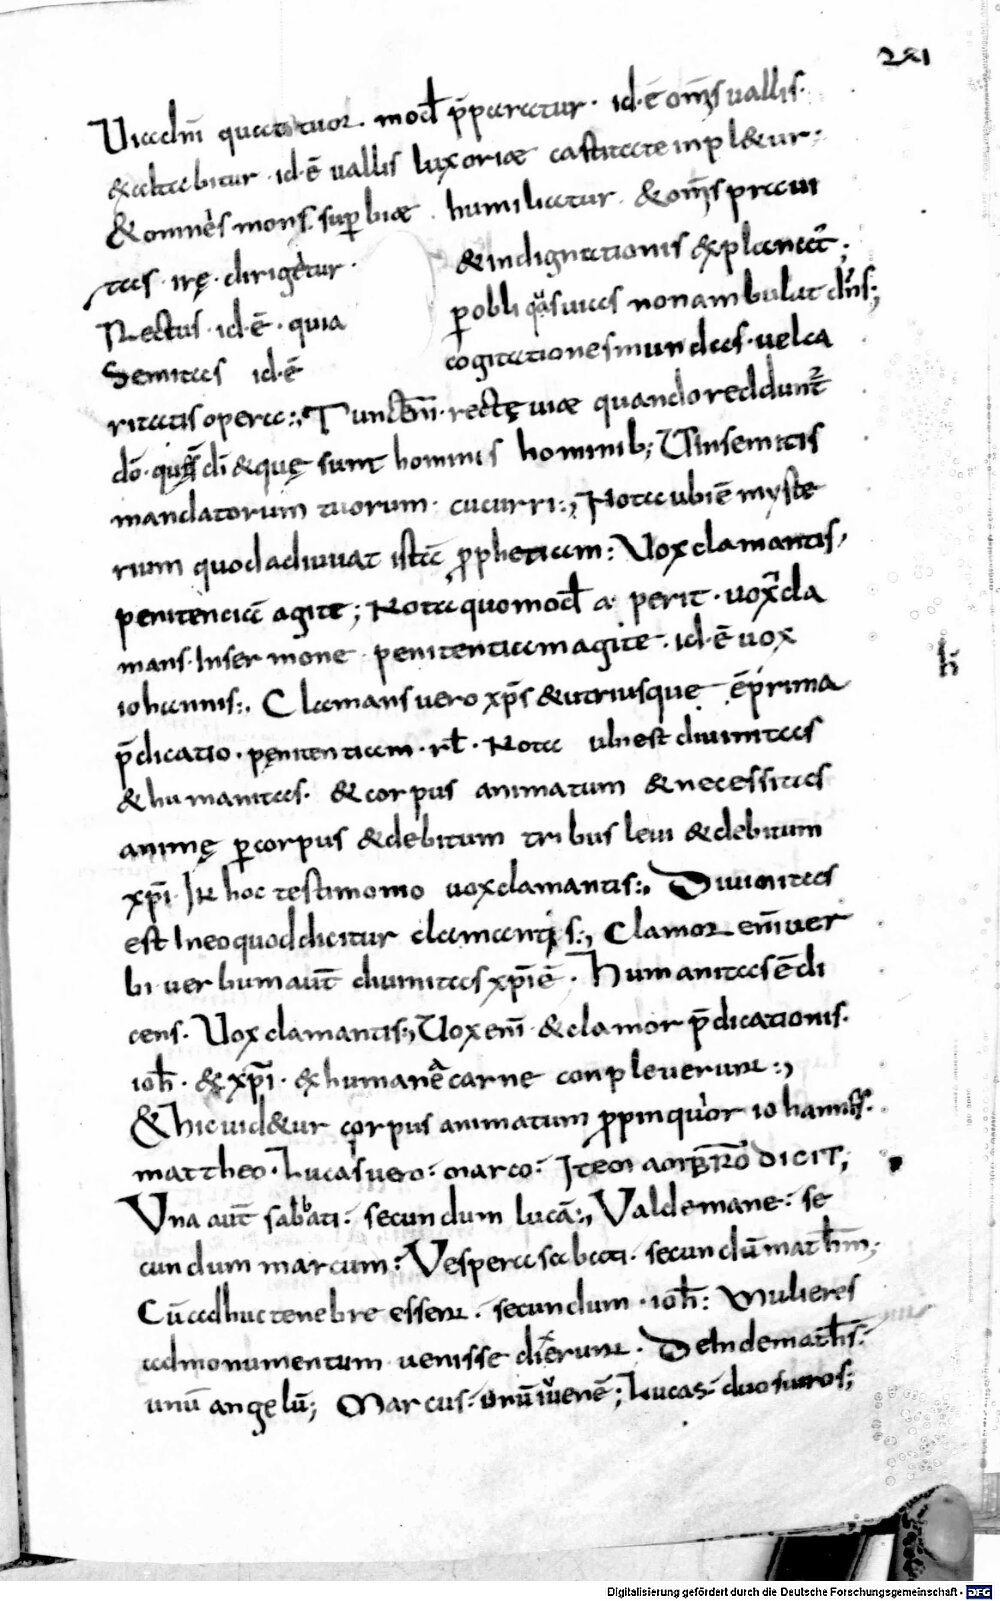 221
Uia dnī quattuor. mod̄ p̄paratur. id·ē om̄s uallis.
& altabitur. id·ē uallis luxoriae castitate inpl&ur;
& omnes mons. superbiae. humiliatur. & om̄s praui
tas. irę. dirigetur. & indignationis explanat̄;
Rectus. id·ē. quia p obliquas uias non ambulat dn̄s;
Semitas id·ē cogitationes mundas. uel ca
ritatis opera:, Tunc enī. rectę uiae quando reddunt̄
dō. quę s̄ dī & quę sunt hominis hominib; Uĩ in semitis
mandatorum tuorum. cucurri:, Nota ubi ē myste
rium quod adiuuat istā propheticam: Uox clamantis,
penitenciā agite; Nota quomod̄ a perit. uox cla
mans. In sermone penitentiam agite. id·ē uox
iohannis:, Clamans uero xp̄s & utriusque ē prima
p̄dicatio. penitentiam. rł. Nota ubi est diuinitas
& humanitas. & corpus animatum & necessitas
animę p corpus & debitum tribus leui & debitum
xp̄i. In hoc testimonio uox clamantis:, Diuinitas
est In eo quod dicitur clamantis:, Clamor enī uer
bi uerbum aut̄ diuinitas xp̄i ē. Humanitas ē di
cens. Uox clamantis:, Uox enī & clamor p̄dicationis.
ioh̄. & xp̄i. ex humane carne conpleuerunt:,
& hic uid&ur corpus animatum propinquior iohannis.
mattheo. Lucas uero: marco: Item ambro dicit;
Una aut̄ sabbati: secundum lucā:, Ualde mane: se
cundum marcum: Uespera sabbati. secundū math̄m;
Cū adhuc tenebre essent. secundum. ioh̄: mulieres
ad monumentum uenisse dixerunt. Dein de math̄s:
unū angelū; Marcus: unū iuuenē; Lucas: duos uiros;
h̄
Digitalisierung gefördert durch die Deutsche Forschungsgemeinschaft - DFG